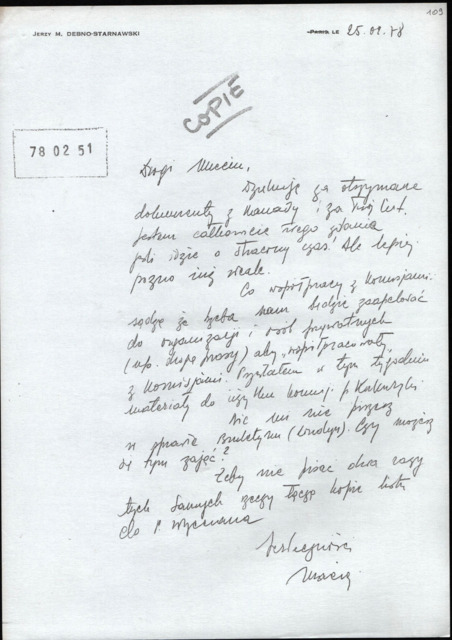 109
JERZY M. DEBNO-STARNAWSKI
PARIS, LE 25.02.78
COPIE
78 02 51
Drogi
Dziękuję za otrzymane
dokumenty z Kanady i za Twój list.
Jestem całkowicie Twego zdania
jeśli idzie o stracony czas. Ale lepiej
późno niż wcale.
Co współpracy z Komisjami:
sądzę że trzeba nam będzie zaapelować
do organizacji i osób prywatnych
(np. prasy) aby współpracowały
z Komisjami. w tym tygodniu
materiały do użytku komisji p.
Nic mi nie piszesz
w sprawie Biuletynu (Londyn). Czy możesz
się tym zająć?
Żeby nie pisać dwa razy
tych samych rzeczy łączę kopię listu
do P.
Serdeczności
Maciej